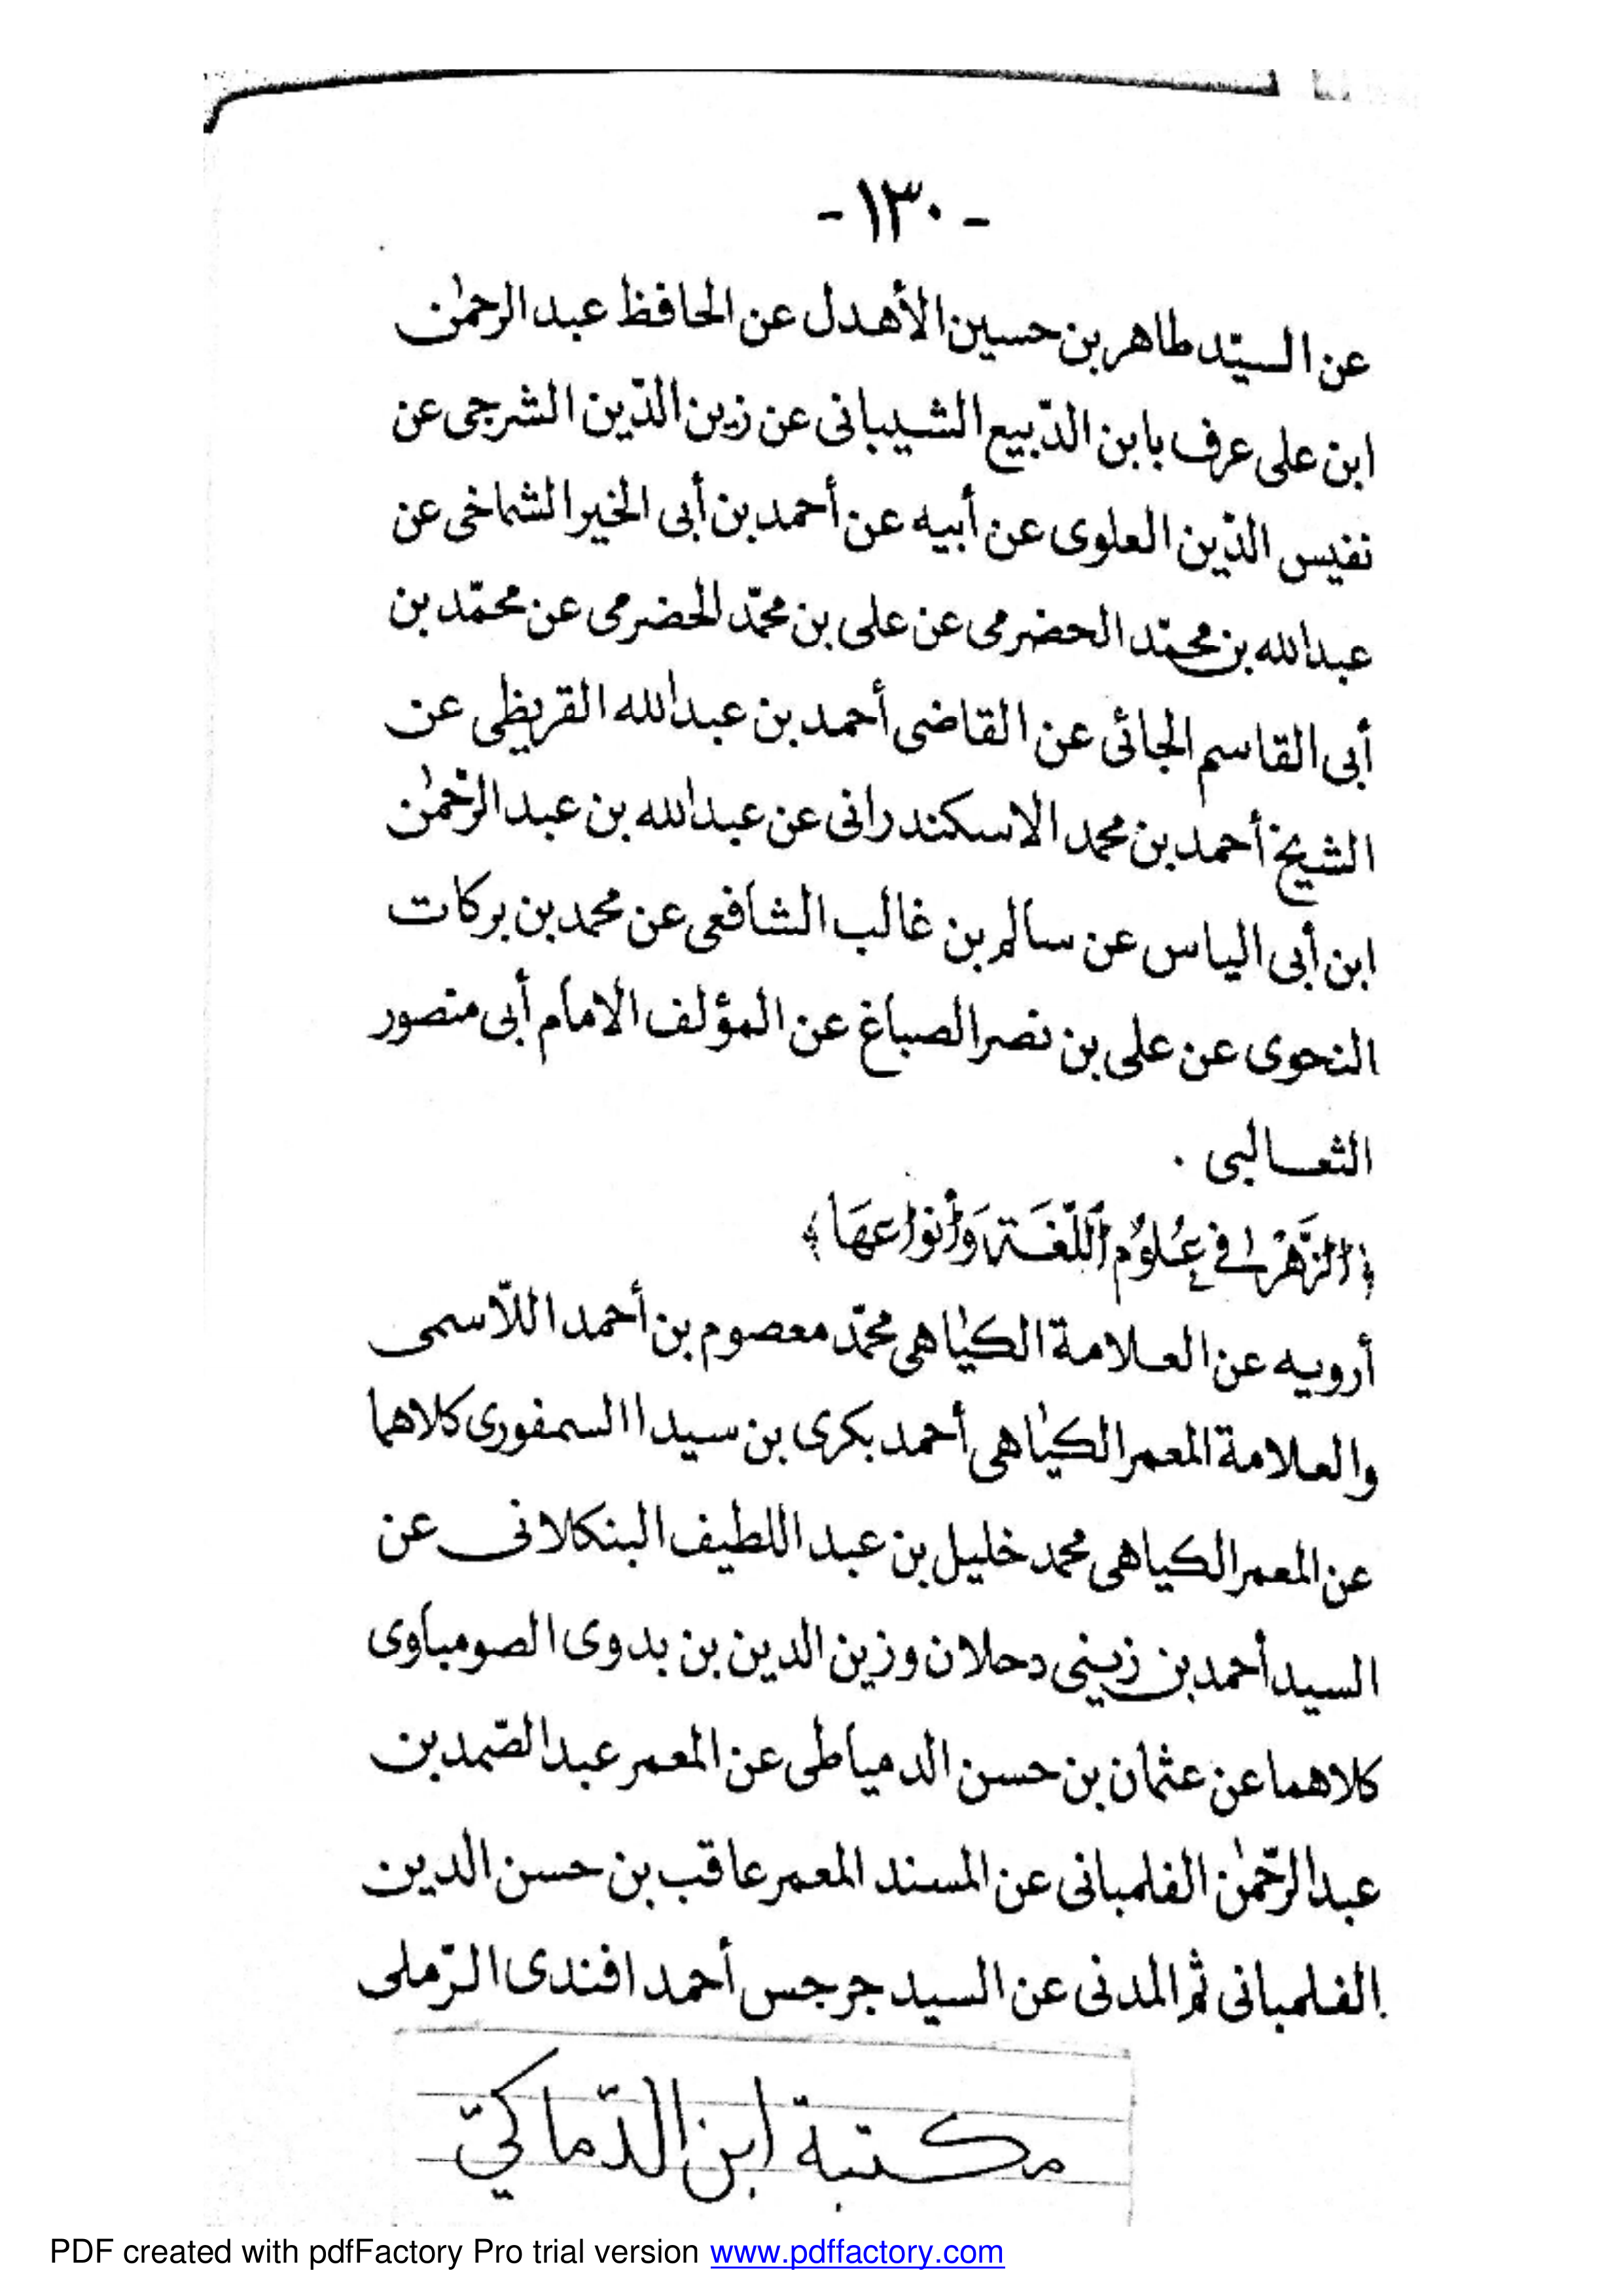 - ١٣٠ -
عن السيّد طاهر بن حسين الأهدل عن الحافظ عبد الرحمٰن
ابن على عرف بابن الدّبيع الشيبانى عن زين الدّين الشرجى عن
نفيس الدّين العلوى عن أبيه عن أحمد بن أبى الخير الشماخى عن
عبد الله بن محمّد الحضرمى عن على بن محمّد الحضرمى عن محمّد بن
أبى القاسم الجائى عن القاضى أحمد بن عبد الله القريظى عن
الشيخ أحمد بن محمد الاسكندرانى عن عبد الله بن عبد الرّحمٰن
ابن أبى الياس عن سالم بن غالب الشافعى عن محمد بن بركات
النحوى عن على بن نصر الصباغ عن المؤلف الامام أبى منصور
الثعالبى .
﴿الزَّهْرُ فِي عُلُوْمِ اللُّغَةِ وَأَنْوَاعِهَا﴾
أرويه عن العلامة الكيٰاهى محمّد معصوم بن أحمد اللّاسمى
والعلامة المعمر الكيٰاهى أحمد بكرى بن سيدا السمفورى كلاهما
عن المعمر الكياهى محمد خليل بن عبد اللطيف البنكلانى عن
السيد أحمد بن زينى دحلان وزين الدين بن بدوى الصومباوى
كلاهما عن عثمان بن حسن الدمياطى عن المعمر عبد الصّمد بن
عبد الرّحمٰن الفلمبانى عن المسند المعمر عاقب بن حسن الدين
الفلمبانى ثم المدنى عن السيد جرجس أحمد افندى الرّملى
مكتبة ابن الدّماكيّ
PDF created with pdfFactory Pro trial version www.pdffactory.com